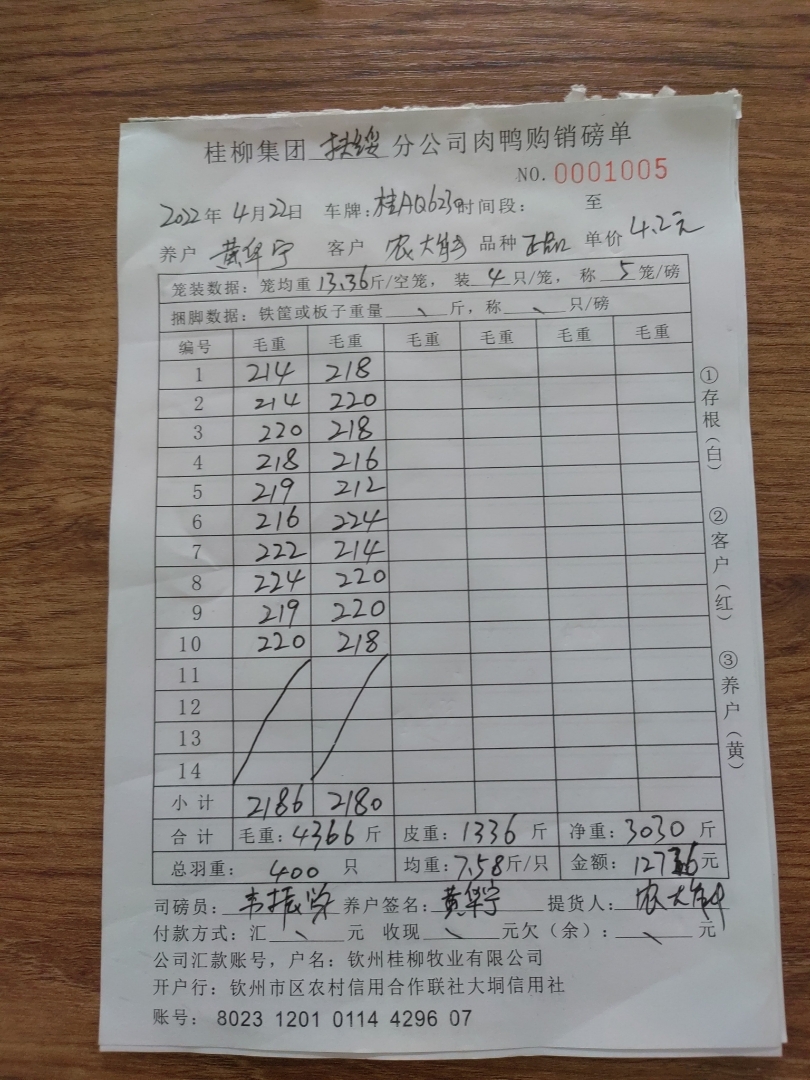 桂柳集团 扶绥 分公司肉鸭购销磅单
NO. 0001005
2022年 4月22日 车牌：桂AQ623 时间段： 至
养户 黄华宁 客户 农大 品种 正品 单价 4.2元
笼装数据：笼均重 13.36斤/空笼，装 4 只/笼，称 5 笼/磅
捆脚数据：铁筐或板子重量 斤，称 只/磅
编号 毛重 毛重 毛重 毛重 毛重 毛重
1 214 218
2 214 220
3 220 218
4 218 216
5 219 212
6 216 224
7 222 214
8 224 220
9 219 220
10 220 218
11
12
13
14
小计 2186 2180
合计 毛重：4366 斤 皮重：1336 斤 净重：3030 斤
总羽重： 400 只 均重：7.58斤/只 金额：12726元
司磅员：韦振 养户签名：黄华宁 提货人：农大
付款方式：汇 元 收现 元欠（余）： 元
公司汇款账号，户名：钦州桂柳牧业有限公司
开户行：钦州市区农村信用合作联社大垌信用社
账号：8023 1201 0114 4296 07
①存根（白）
②客户（红）
③养户（黄）